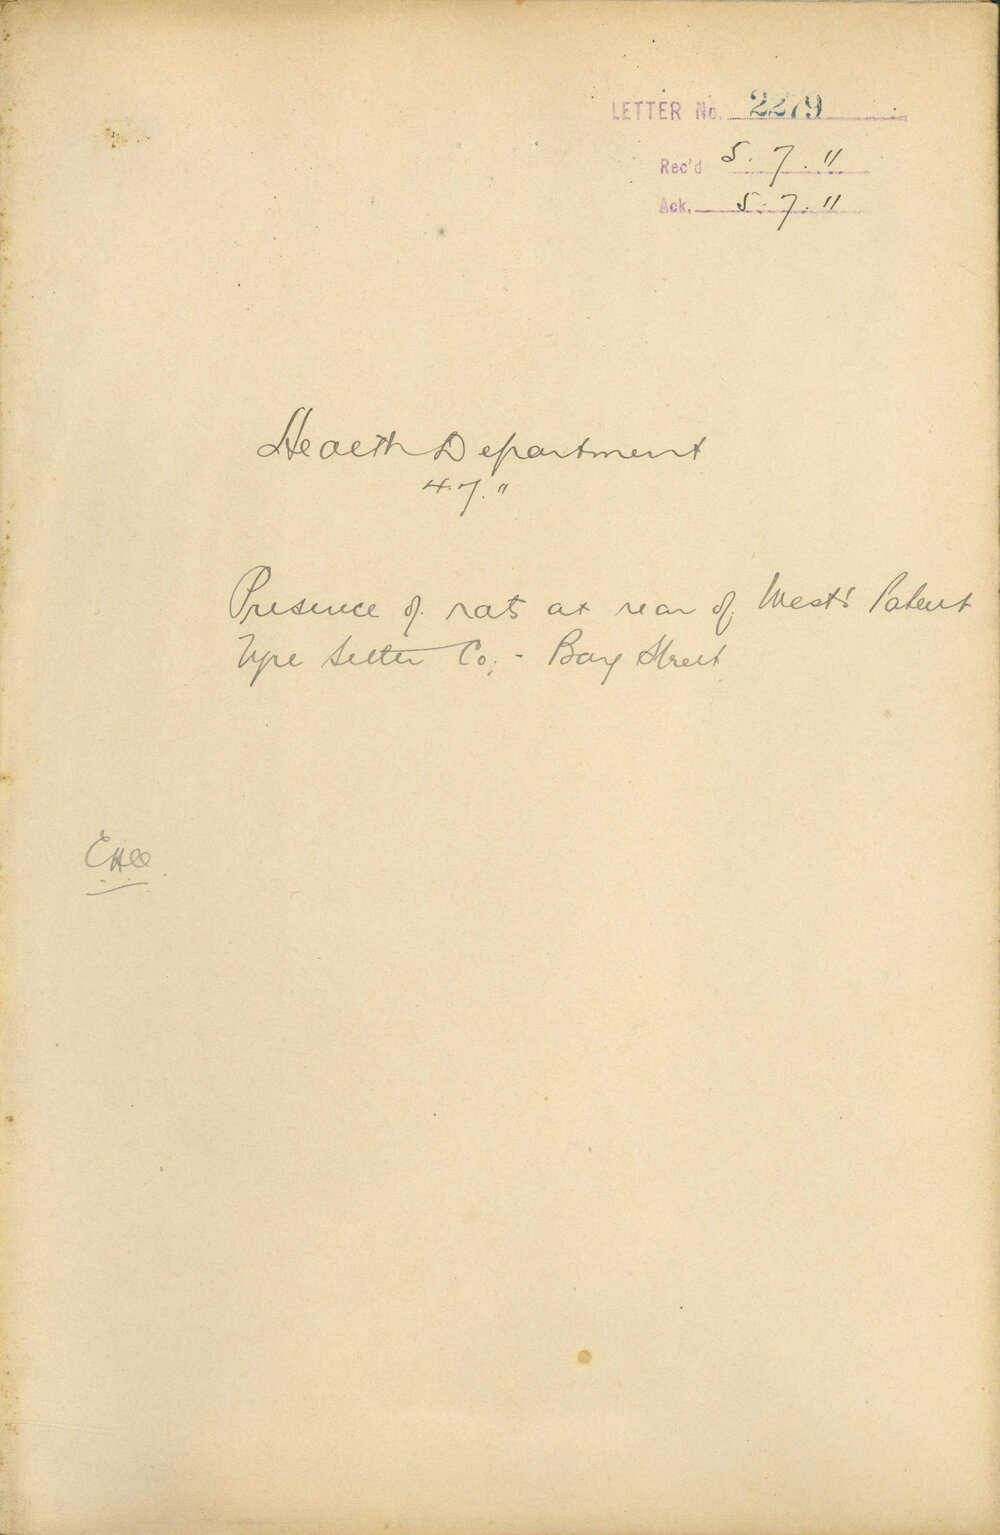 LETTER No. 2279
Rec'd 5.7.11
Ack. 5.7.11
Health Department
4.7.11
Presence of rats at rear of West's Patent
Type Setter Co; - Bay Street